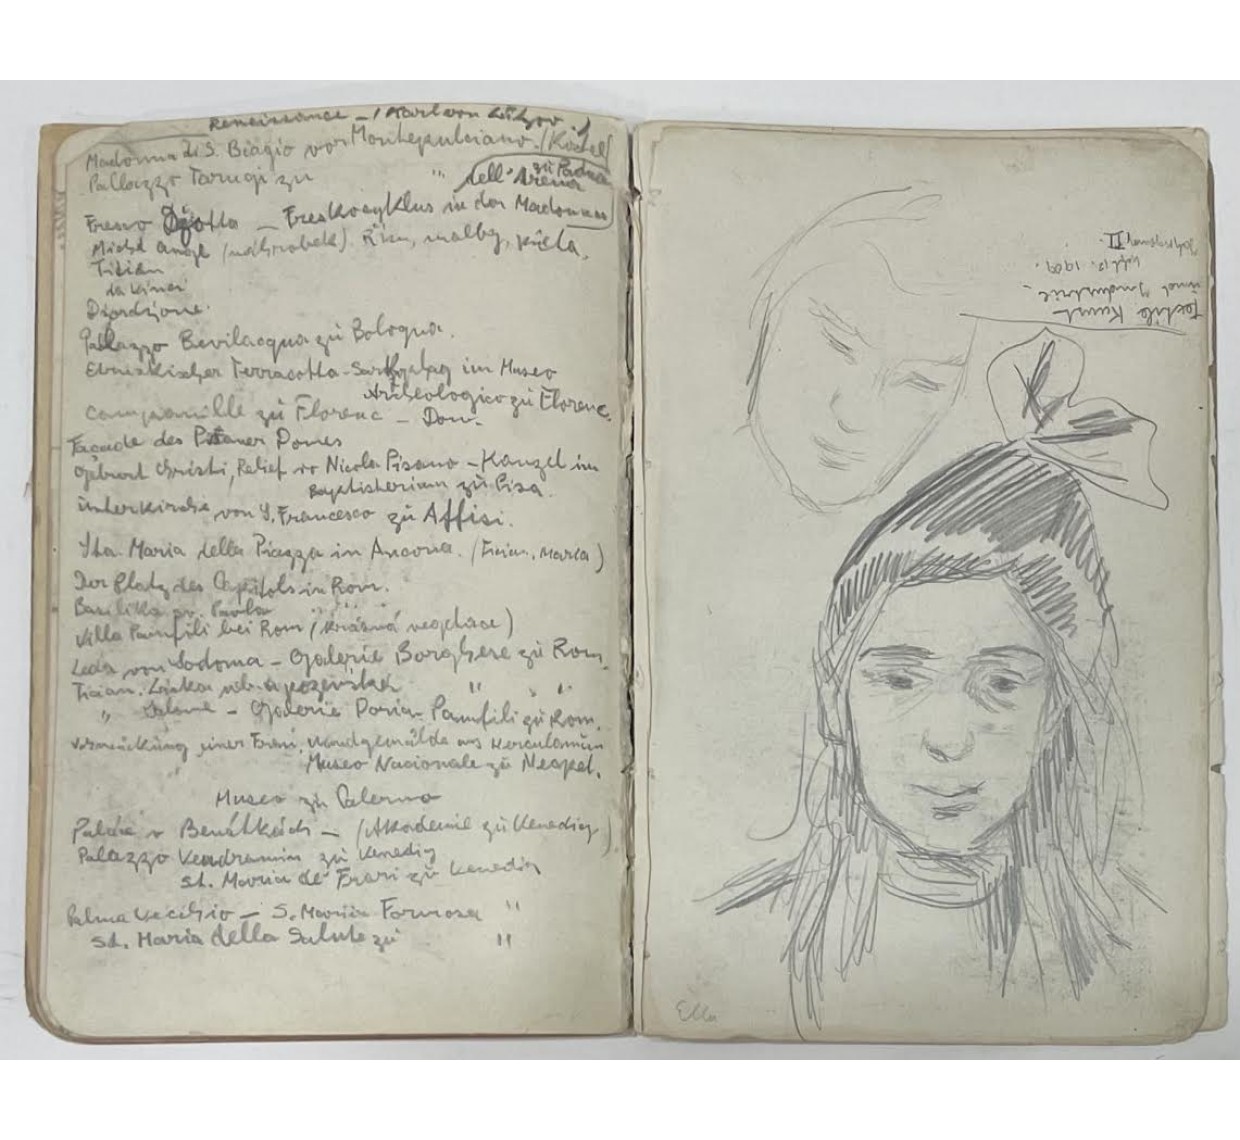 Renaissance – / Karl von Lützov /
Madonna di S. Biagio von Montepulciano.
Pallazzo Tarugi zu "
dell'Arena zu Padua
Fresco Djotto – Freskocyklus in der Madonna
Michel Angel (náhrobek). Řím, malby,
Tizian
da Vinci
Djordjone.
Pallazzo Bevilacqua zu Bologna.
Etruskischer Terracotta-Sarkophag im Museo
Archeologico zu Florenc.
campanille zu Florenc – Dom.
Façade des Pisaner Domes
Geburt Christi, Relief v Nicola Pisano – Kanzel im
Baptisterium zu Pisa.
Unterkirche von S. Francesco zu Assisi.
Sta. Maria della Piazza in Ancona.
Der Platz des Capitols in Rom.
Basilika sv. Pavla
Villa Pamfili bei Rom (krásná vegetace)
Leda von Sodoma – Galerie Borghese zu Rom.
Tician. Láska neb. a pozemská " " "
" Salome – Galerie Doria-Pamfili zu Rom.
einer Frau, Wandgemälde aus Herculanum
Museo Nacionale zu Neapel.
Museo zu Palermo
Paláce v Benátkách – (Akademie zu Venedig)
Palazzo Vendramin zu Venedig
St. Maria de Frari zu Venedig
Palma Vecchio – S. Maria Formosa "
St. Maria della Salute zu "
Textile Kunst
und Industrie.
1909.
II.
Ella